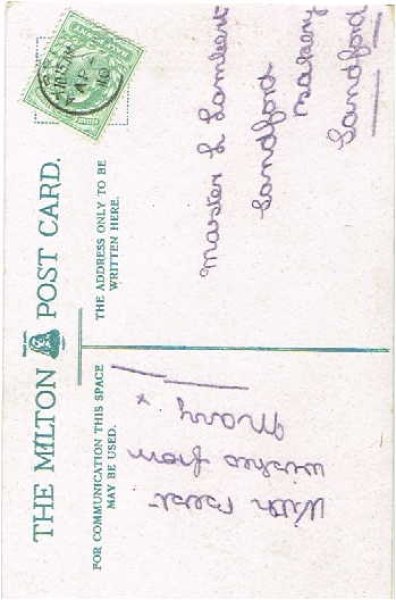 THE MILTON POST CARD.
FOR COMMUNICATION THIS SPACE
MAY BE USED.
THE ADDRESS ONLY TO BE
WRITTEN HERE.
With best
wishes from
Mary x
Master L Lambert
Sandford
Bakery
Sandford
AP
10